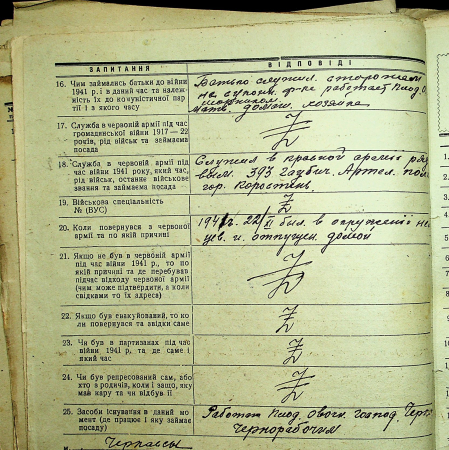 ЗАПИТАННЯ
ВІДПОВІДІ
16. Чим займались батьки до війни
1941 р. і в даний час та належ-
ність їх до комуністичної пар-
тії і з якого часу
Батько служил сторожем
на сукон. ф-ке работает Плод. О
мать домаш. хозяйка
17. Служба в червоній армії під час
громадянської війни 1917—22
років, рід військ та займаєма
посада
Z
18. Служба в червоній армії під
час війни 1941 року, який час,
рід військ, останнє військове
звання та займаєма посада
Служил в красной армии ряд
393 Гаубич. Артел. пол
гор. Коростень.
19. Військова спеціальність
№ (ВУС)
Z
20. Коли повернувся з червоної
армії та по якій причині
22/II был в окружении
и отпущен домой
21. Якщо не був в червоній армії
під час війни 1941 р., то по
якій причині та де перебував
підчас відходу червоної армії
(чим може підтвердити, а коли
свідками то їх адреса)
Z
22. Якщо був евакуйований, то ко
ли повернувся та звідки саме
Z
23. Чи був в партизанах під час
війни 1941 р, та де саме і
який час
Z
24. Чи був репресований сам, або
хто з родичів, коли і защо, яку
мав кару та чи відбув її
Z
25. Засоби існування в даний мо
мент (де працює і яку займає
посаду)
Работаю Плод. Овощ. господ. Черк
Чернорабочим
Черкассы